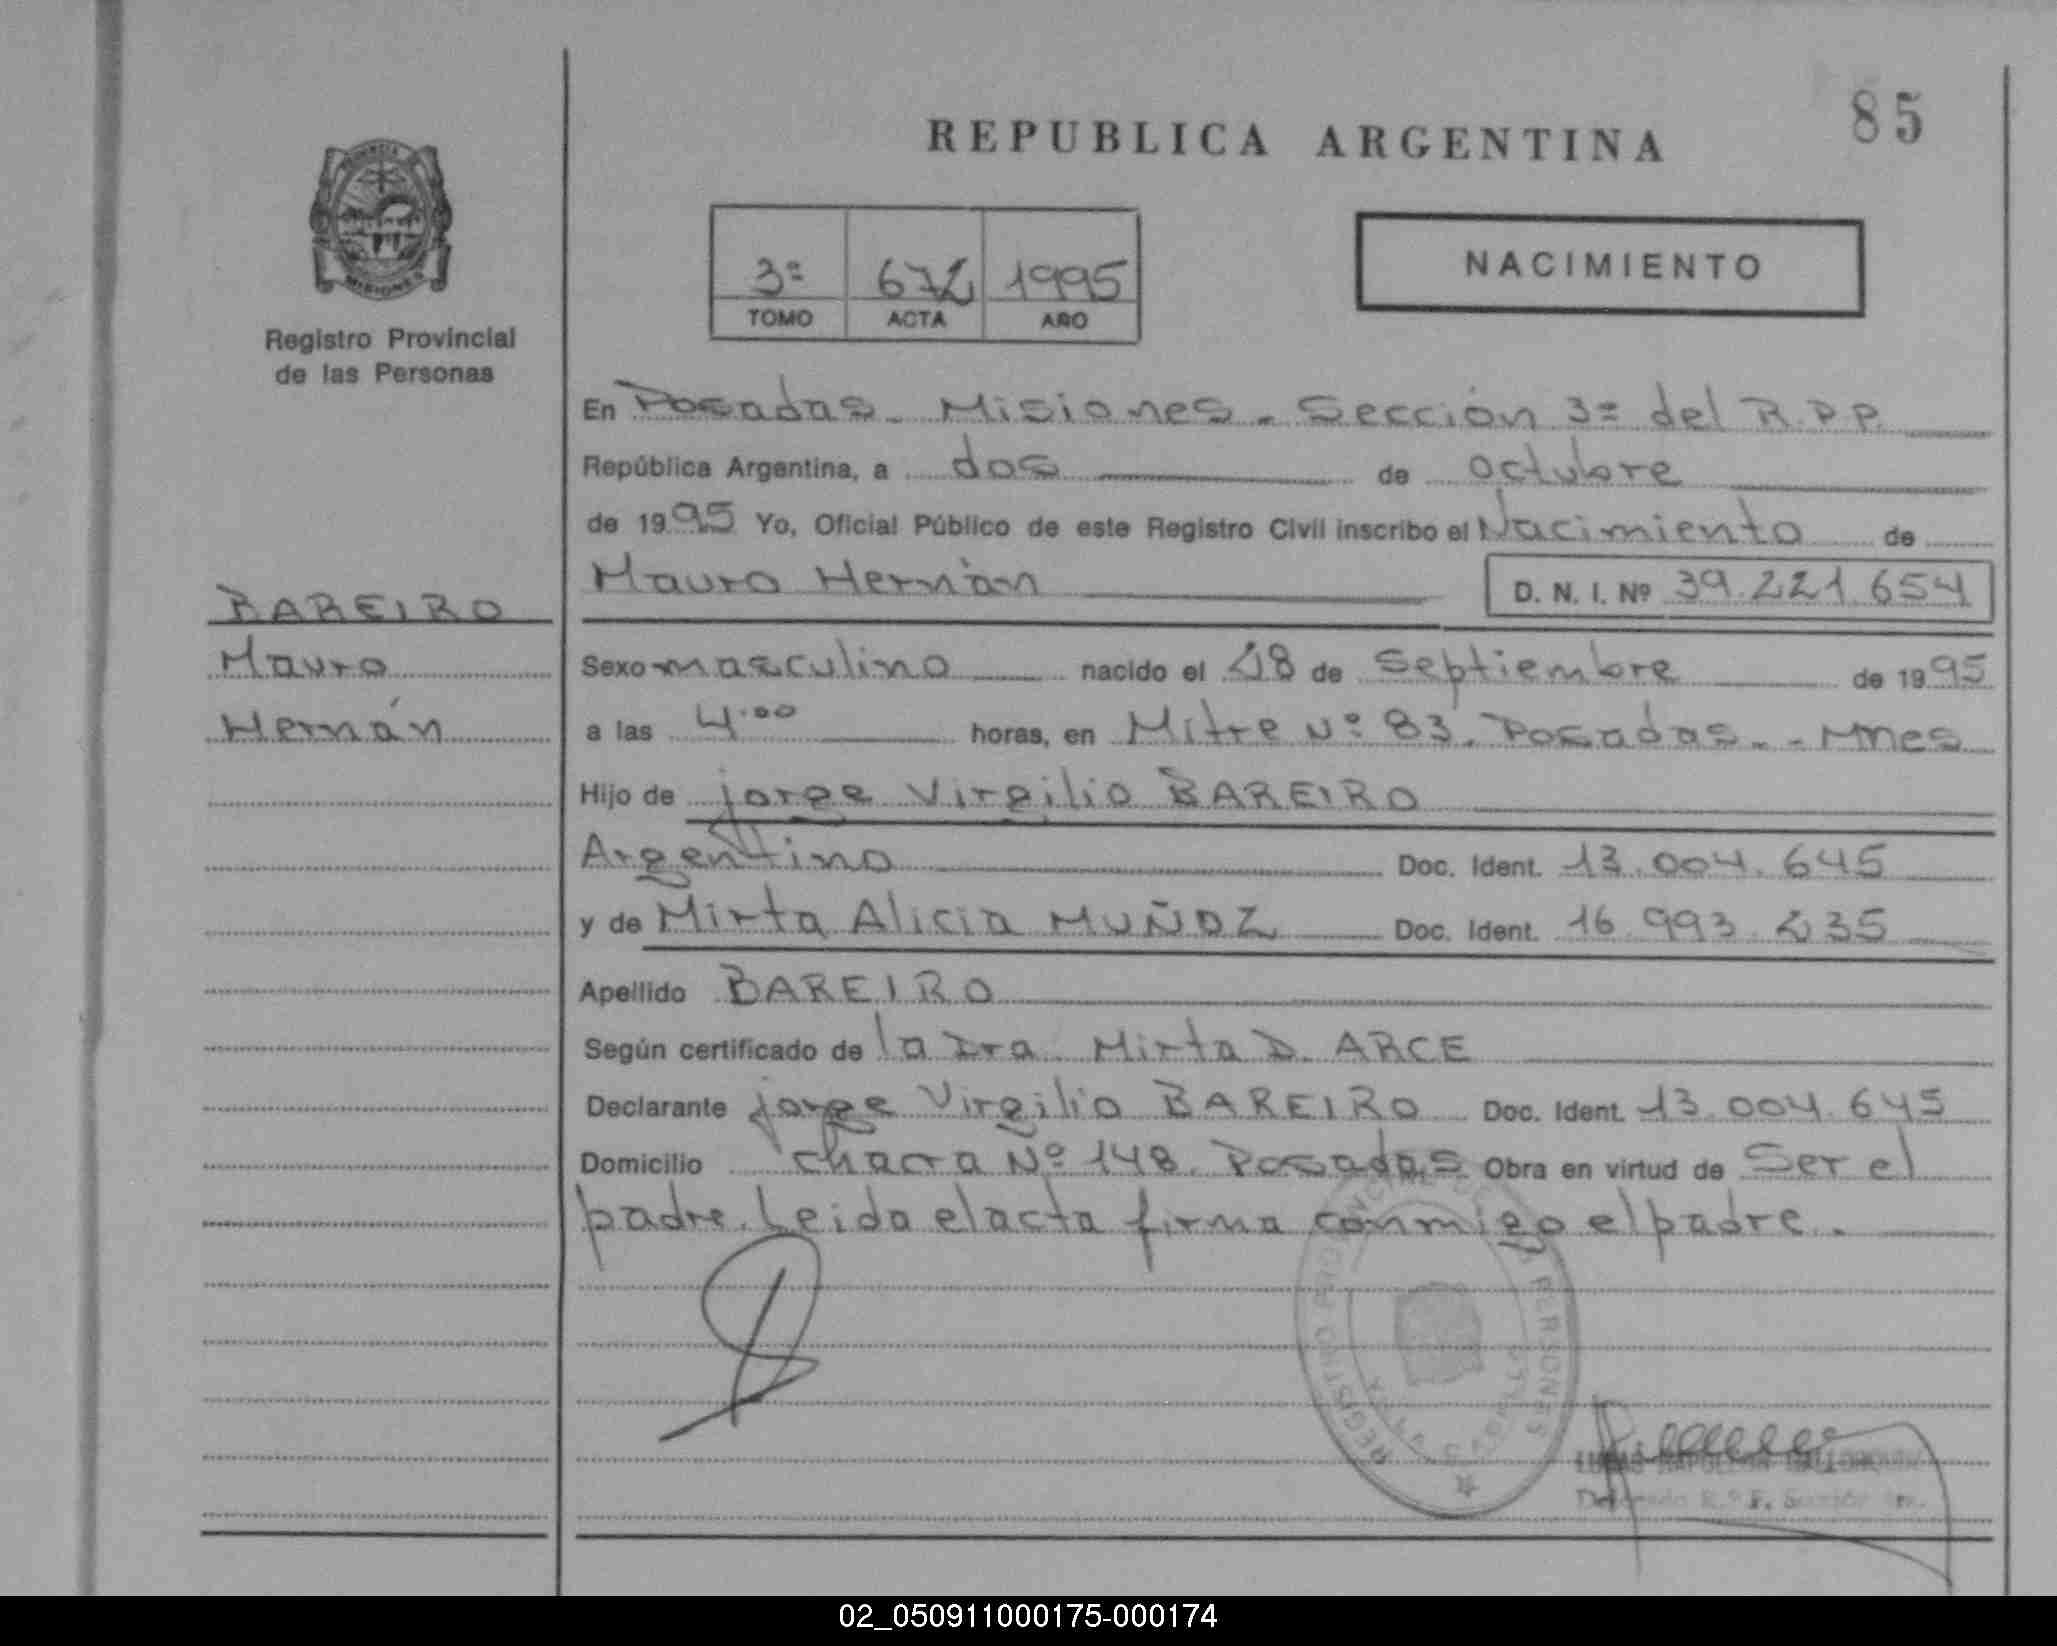 85
REPUBLICA ARGENTINA
PROVINCIA
MISIONES
Registro Provincial
de las Personas
3ª 672 1995
TOMO ACTA AÑO
NACIMIENTO
En Posadas - Misiones - Sección 3ª del R.P.P.
República Argentina, a dos de octubre
de 1995 Yo, Oficial Público de este Registro Civil inscribo el Nacimiento de
Mauro Hernán D. N. I. Nº 39.221.654
BAREIRO
Mauro
Hernán
Sexo masculino nacido el 18 de Septiembre de 1995
a las 4.00 horas, en Mitre Nº 83. Posadas - Mnes
Hijo de jorge Virgilio BAREIRO
Argentino Doc. Ident. 13.004.645
y de Mirta Alicia MUÑOZ Doc. Ident. 16.993.235
Apellido BAREIRO
Según certificado de la Dra. Mirta D. ARCE
Declarante jorge Virgilio BAREIRO Doc. Ident. 13.004.645
Domicilio chacra Nº 148. Posadas Obra en virtud de Ser el
padre. Leida el acta firma conmigo el padre.
REGISTRO PROVINCIAL DE PERSONES
02_050911000175-000174